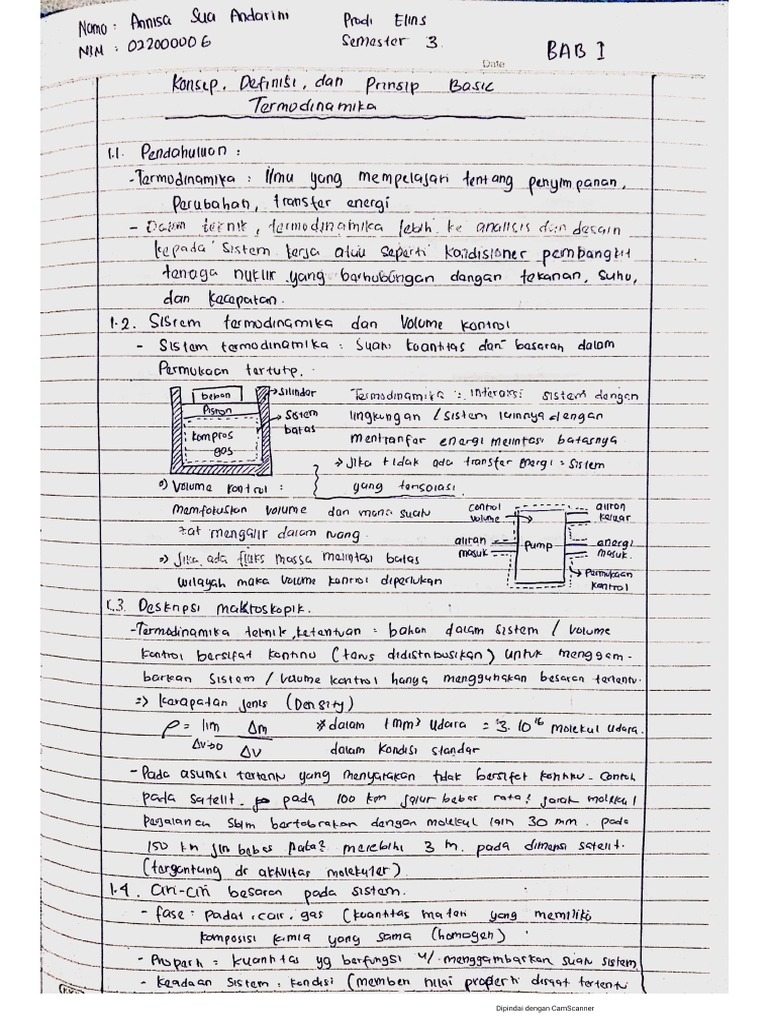 Nama : Annisa Sua Andarini
Prodi Elins
NIM : 022000006
Semester 3
BAB I
Date
Konsep, Definisi, dan Prinsip Basic
Termodinamika
1.1. Pendahuluan :
- Termodinamika : Ilmu yang mempelajari tentang penyimpanan,
Perubahan, transfer energi
- Dalam teknik, termodinamika lebih ke analisis dan desain
kepada sistem kerja atau seperti kondisioner pembangkit
tenaga nuklir yang berhubungan dengan tekanan, suhu,
dan kecepatan.
1.2. Sistem termodinamika dan Volume kontrol
- Sistem termodinamika : Suatu kuantitas dan besaran dalam
Permukaan tertutp.
beban
Piston
kompres
gas
→ Silindar
→ Sistem
batas
Termodinamika : interaksi sistem dengan
lingkungan / sistem lainnya dengan
mentranfer energi melintasi batasnya
→ Jika tidak ada transfer energi : sistem
yang terisolasi
o) Volume kontrol :
memfokuskan volume dan mana suatu
zat mengalir dalam ruang.
⇒ Jika ada fluks massa melintasi batas
wilayah maka volume kontrol diperlukan
control
volume
aliran
keluar
aliran
masuk
pump
energi
masuk.
→ Permukaan
kontrol
1.3 Deskripsi makroskopik.
- Termodinamika teknik, ketentuan : bahan dalam sistem / volume
kontrol bersifat kontinu (terus didistribusikan) untuk menggam-
barkan sistem / volume kontrol hanya menggunakan besaran tertentu.
⇒ Kerapatan jenis (Density)
ρ = lim Δm
Δv→0 Δv
* dalam 1 mm³ udara = 3.10¹⁶ molekul udara.
dalam kondisi standar
- Pada asumsi tertentu yang menyatakan tidak bersifat kontinu. Contoh
pada satelit. pada 100 km jalur bebas rata² jarak molekul
perjalanan sblm bertabrakan dengan molekul lain 30 mm. pada
150 km jln bebas Rata² melebihi 3 m. pada dimensi satelit.
(tergantung dr aktivitas molekuler).
1.4. Ciri-ciri besaran pada sistem.
- fase : padat, cair, gas (kuantitas materi yang memiliki
komposisi kimia yang sama (homogen)
- Properti : kuantitas yg berfungsi u/ menggambarkan suatu sistem
- Keadaan sistem : kondisi (memberi nilai properti disaat tertentu
Dipindai dengan CamScanner